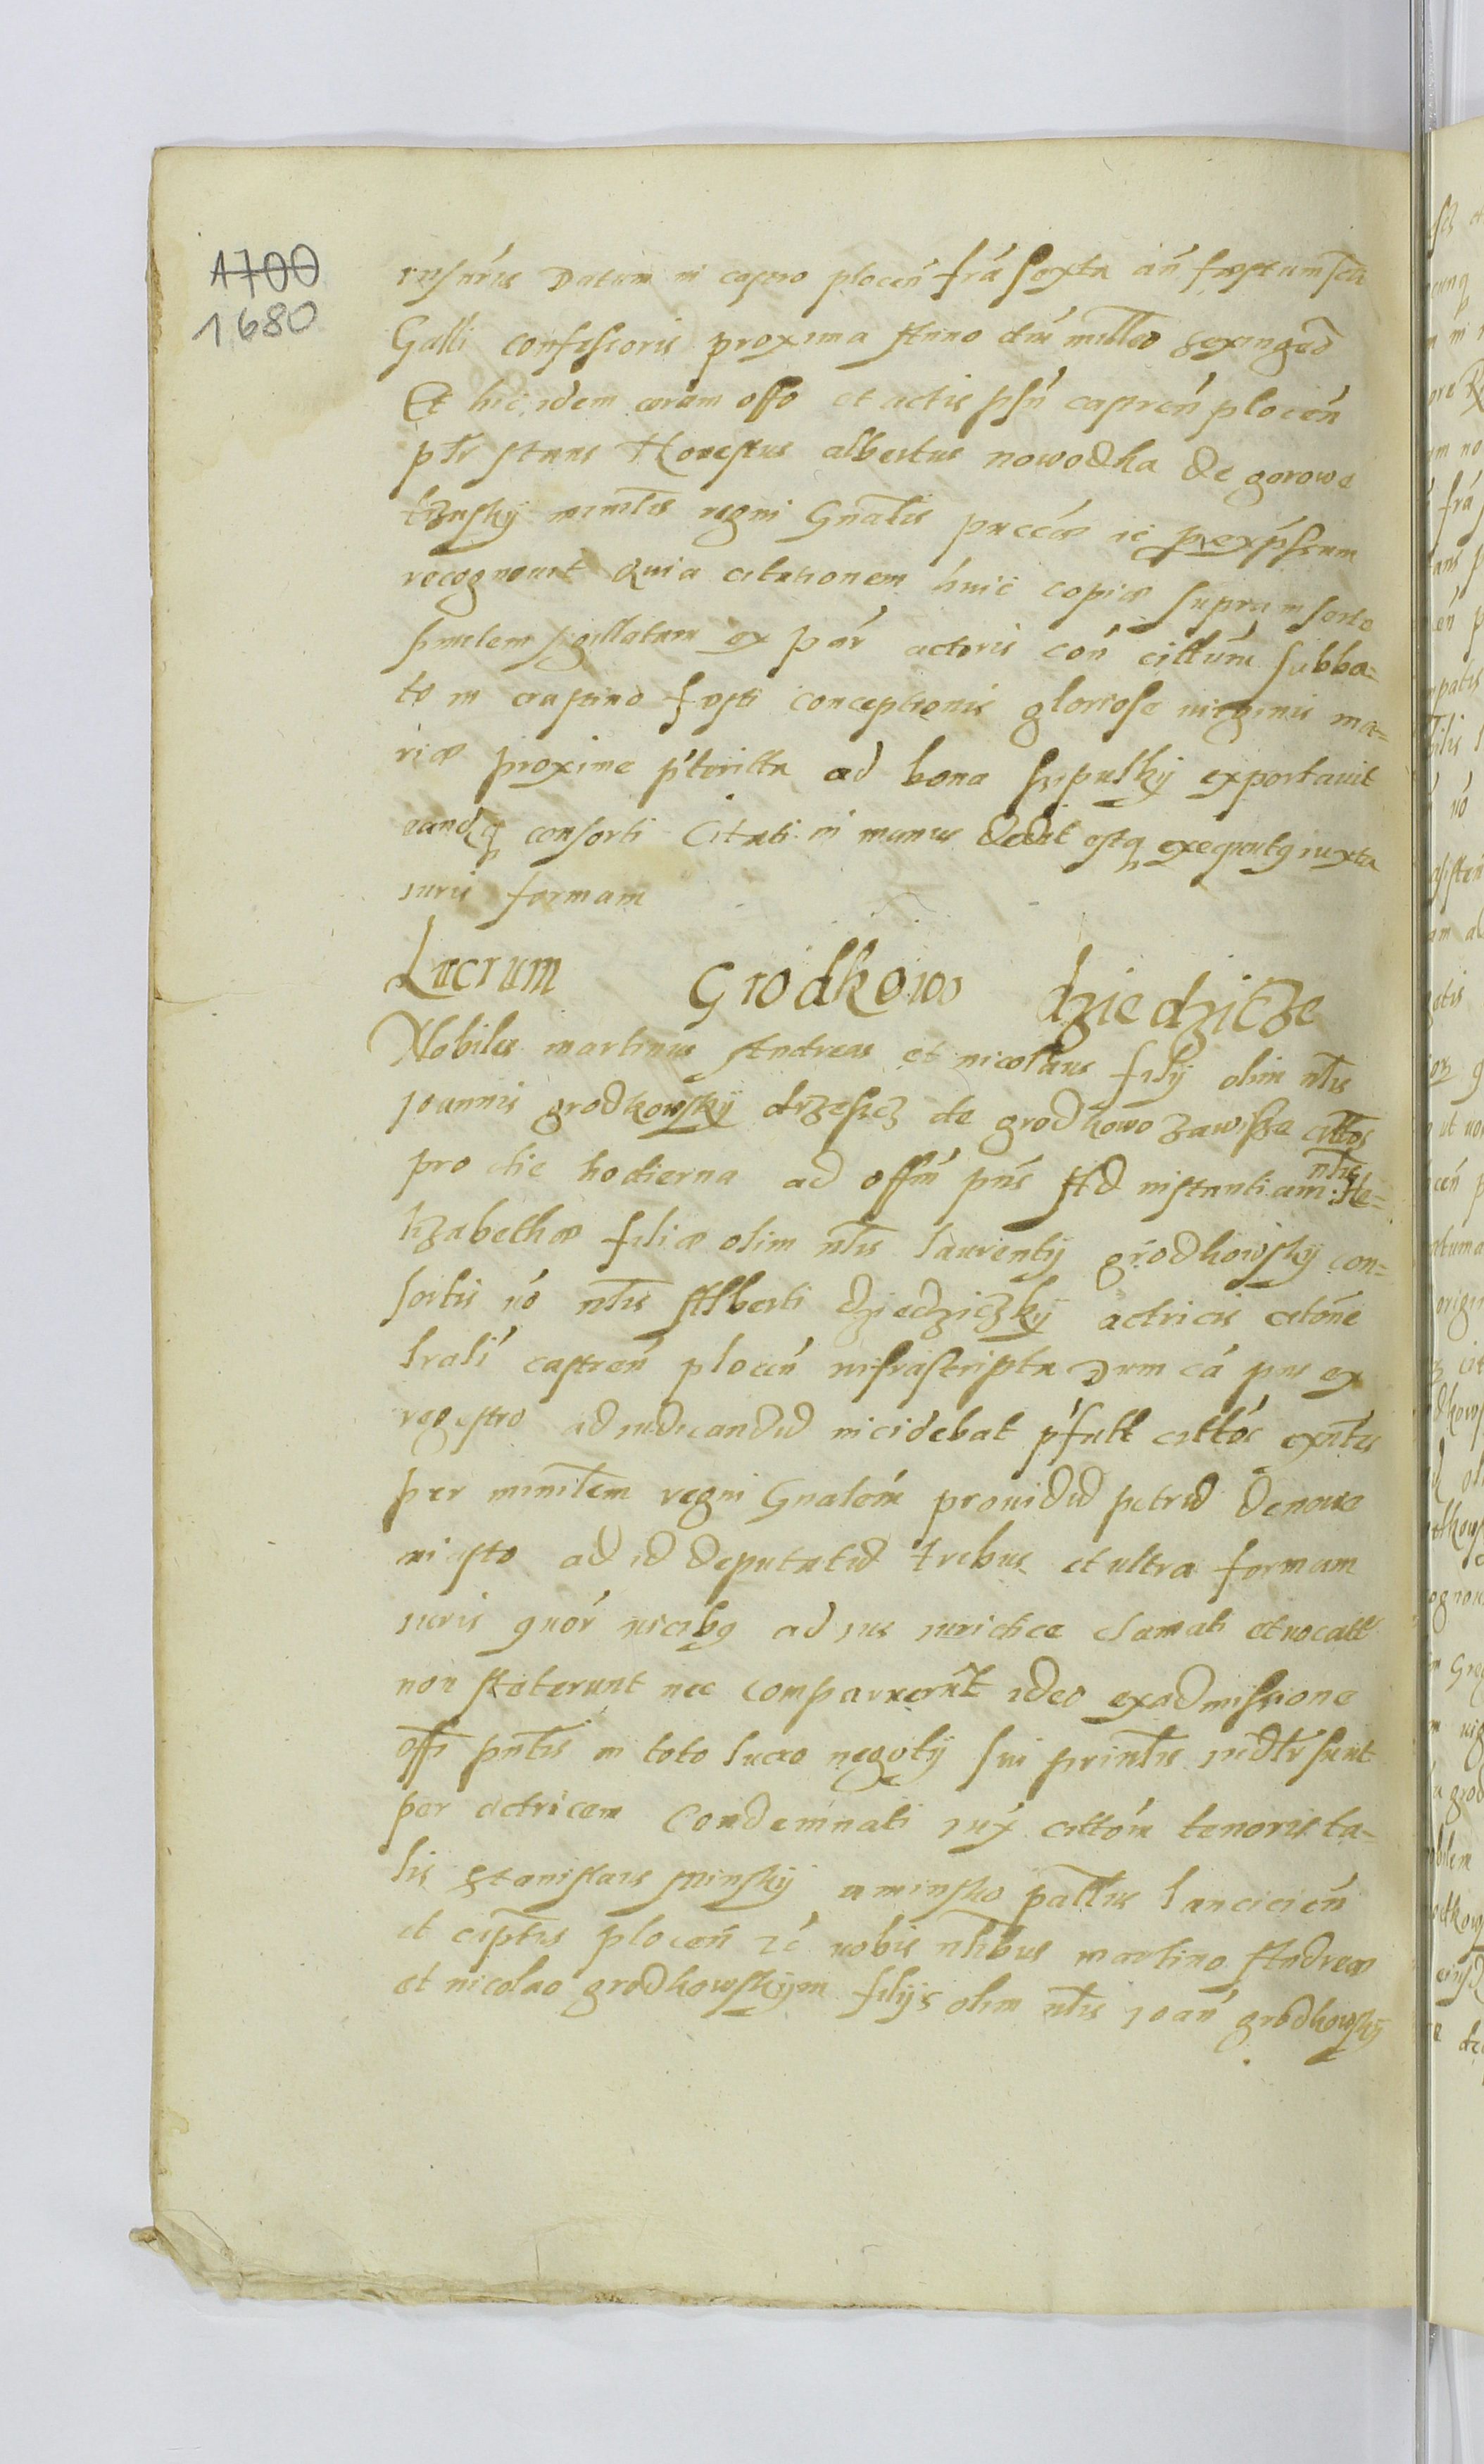 1700
1680
rusuris Datum in castro plocen̄ fr̄a sexta an̄ festum scti
Galli confessoris proxima Anno dni mill̄o sexinged̄
Et hic idem coram offo et actis p̄sn̄ castren̄ plocen̄
pl̄r stans Honestus albertus nowodka de gorowe
minl̄is regni Gnalis
recognouit Quia citationem huic copiæ supra inserte
similem sigillatam ex par̄ actoris con̄ citt̄um sabba=
to in crastino festi conceptionis gloriose uirginis ma=
riæ proxime p̄teritta ad bona exportauit
eandq̄ consorti Citati in manus dedit estq̄ executq̄ iuxta
iuris formam
Lucrum Grodkowo dziedzicze
Nobiles martinus Andreas et nicolaus filij olim nl̄is
Joannis grodkowskij drzesicz de grodkowo zawisze citt̄os
pro die hodierna ad offm̄ pn̄s Ad instantiam nl̄is He=
lizabethæ filiæ olim nl̄is laurentij grodkowskij con=
sortis uo nl̄is Alberti dziedziczkij actricis citōne
l̄rali castren̄ plocen̄ infrascripta Dum cā pns ex
regestro adiudicandū incidebat p̄fatt citt̄os exn̄tes
per minl̄em regni Gnalem prouidū petrū de nowe
miasto ad id deputatū trebus et ultra formam
iuris quor̄ uicibq ad ius iuridice clamati et uocatt
non steterunt nec comparuerūt ideo ex admissione
offi pn̄tis in toto lucro negotij sui prinl̄is iudl̄r sunt
per actricem Condemnati iux̄ citt̄om̄ tenoris ta=
lis Stanislaus minskij a minsko pall̄us lancicien̄
et capn̄s plocen̄ zc̄ uobis nl̄ibus martino Andreæ
et nicolao grodkowskijm filijs olim nl̄is Joan̄ grodkowskij